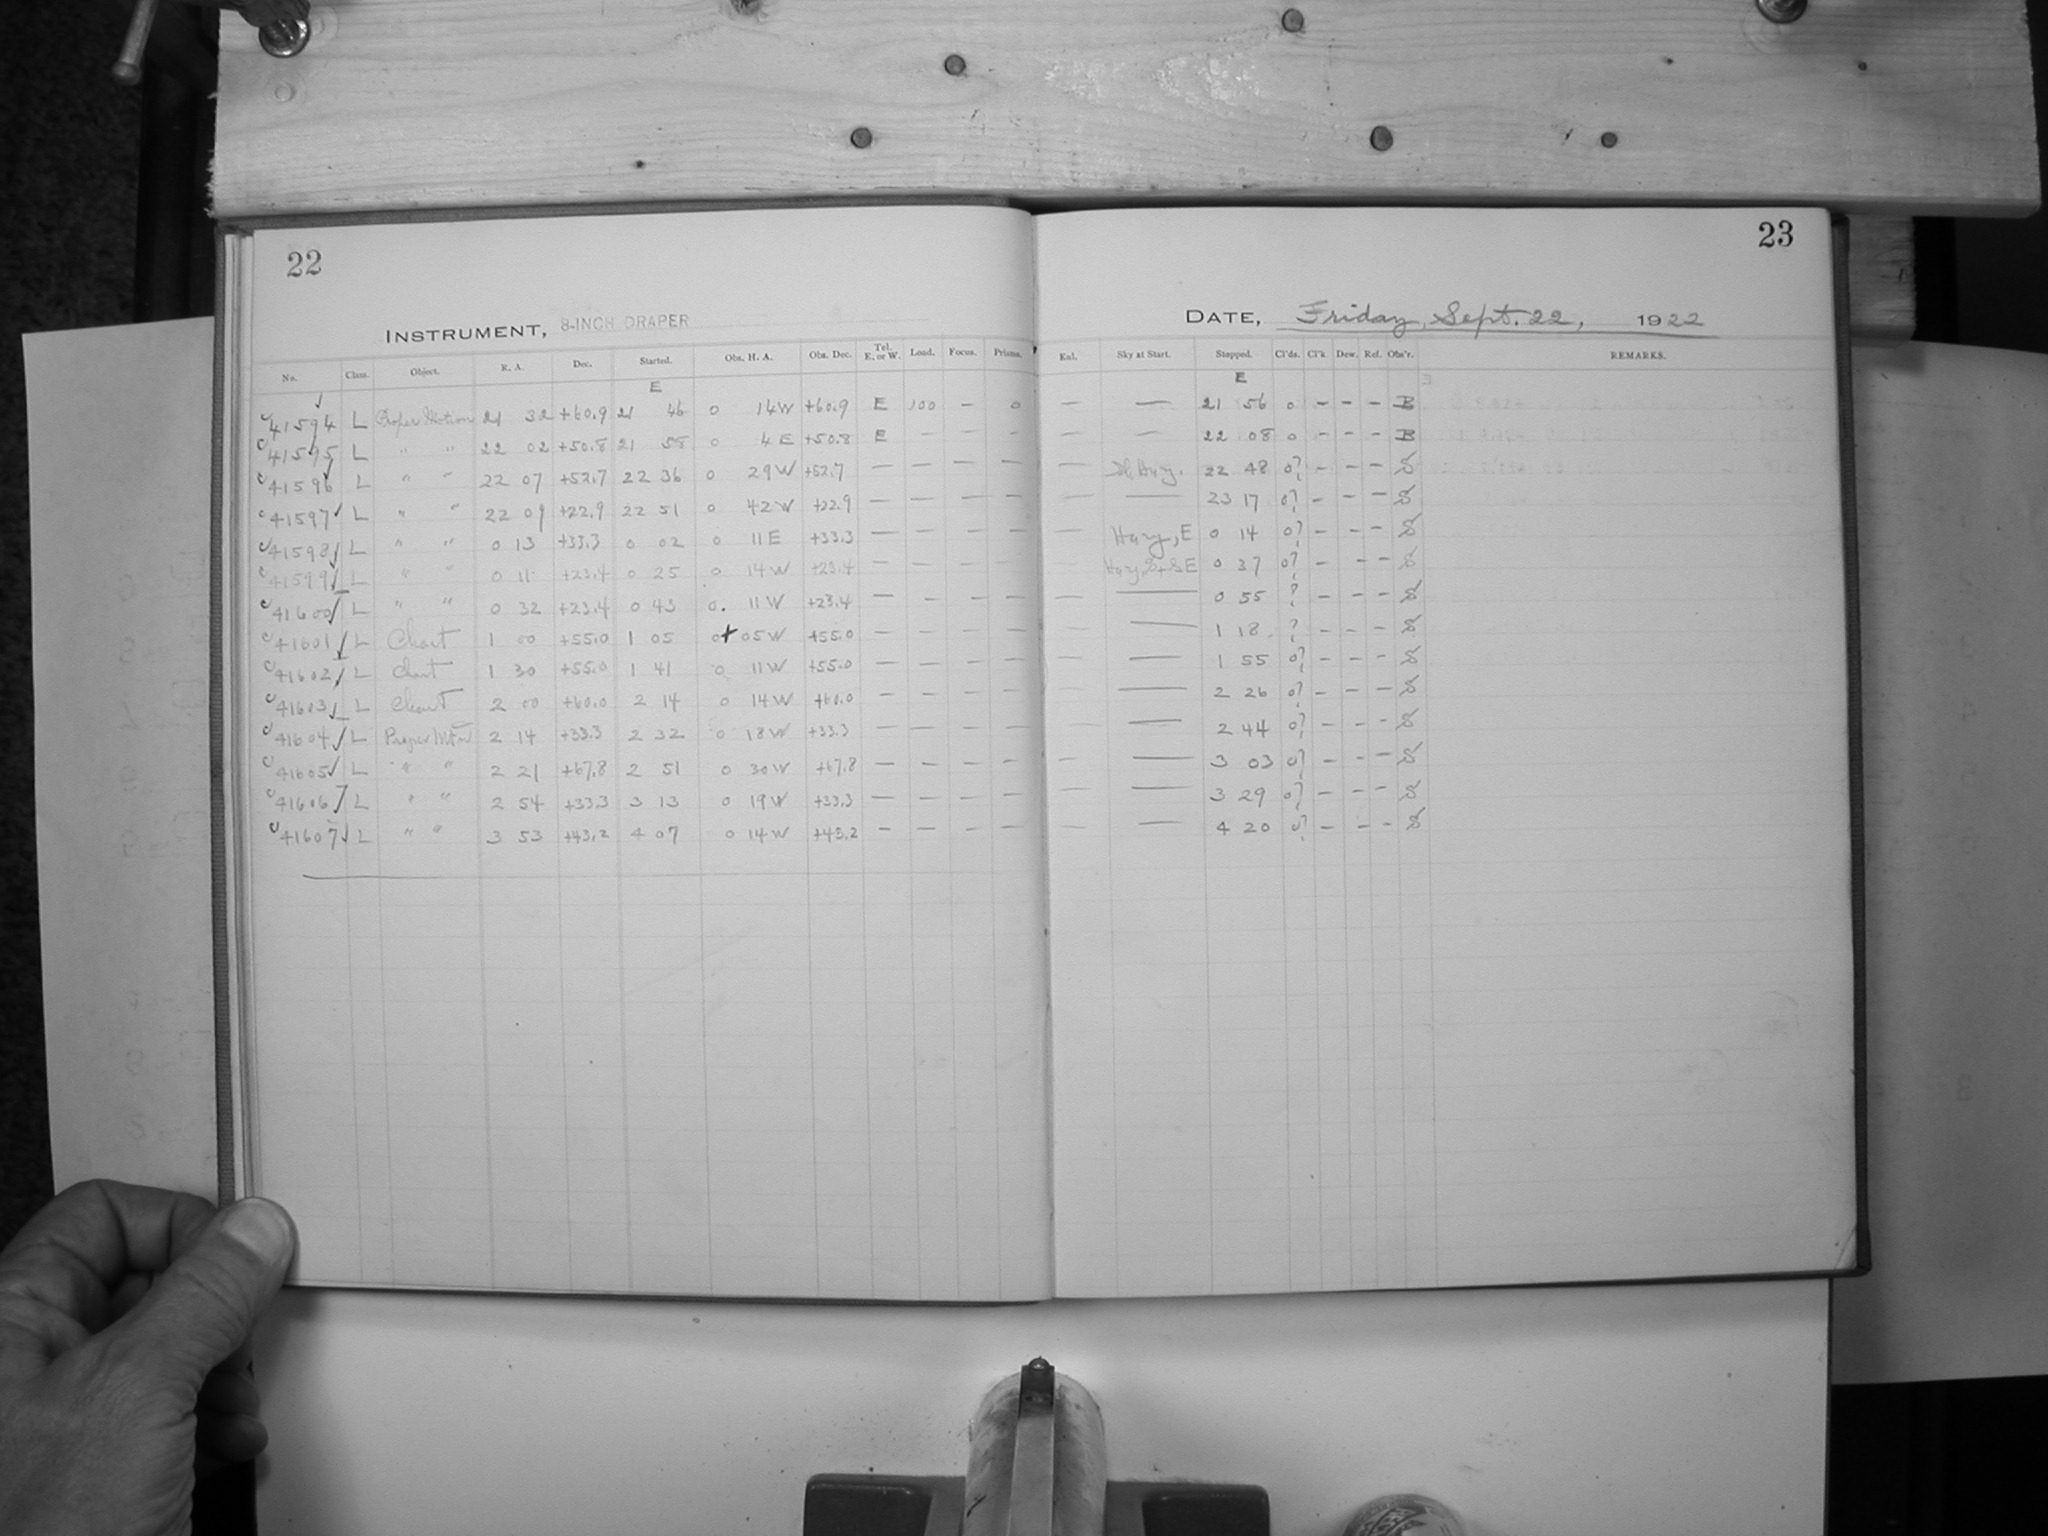 22
23
INSTRUMENT, 8-INCH DRAPER
DATE, Friday, Sept. 22, 1922
No. Class. Object. R. A. Dec. Started. Obs. H. A. Obs. Dec. Tel. E. or W. Load. Focus. Prisms. Enl. Sky at Start. Stopped. Cl'ds. Cl'k. Dew. Ref. Obs'r. REMARKS.
E E
41594 L Proper Motion 21 32 +60.9 21 46 0 14W +60.9 E 100 – 0 — — 21 56 0 – – – B
41595 L " " 22 02 +50.8 21 58 0 4 E +50.8 E – – – — — 22 08 0 – – – B
41596 L " " 22 07 +52.7 22 36 0 29W +52.7 — – – — — Sl Hazy. 22 48 0? – – – S
41597 L " " 22 09 +22.9 22 51 0 42W +22.9 — – – — — — 23 17 0? – – – S
41598 L " " 0 13 +33.3 0 02 0 11E +33.3 — – – — — Hazy, E 0 14 0? – – – S
41599 L " " 0 11 +23.4 0 25 0 14W +23.4 — – – — — Hazy, S+SE 0 37 0? – – – S
41600 L " " 0 32 +23.4 0 43 0. 11W +23.4 — – – — — — 0 55 ? – – – S
41601 L Chart 1 00 +55.0 1 05 0+ 05W +55.0 — – – — — — 1 18 ? – – – S
41602 L Chart 1 30 +55.0 1 41 0 11W +55.0 — – – — — — 1 55 0? – – – S
41603 L Chart 2 00 +60.0 2 14 0 14W +60.0 — – – — — — 2 26 0? – – – S
41604 L Proper Mt'n 2 14 +33.3 2 32 0 18W +33.3 — – – — — — 2 44 0? – – – S
41605 L " " 2 21 +67.8 2 51 0 30W +67.8 — – – — — — 3 03 0? – – – S
41606 L " " 2 54 +33.3 3 13 0 19W +33.3 — – – — — — 3 29 0? – – – S
41607 L " " 3 53 +43.2 4 07 0 14W +43.2 – – – — — — 4 20 0? – – – S